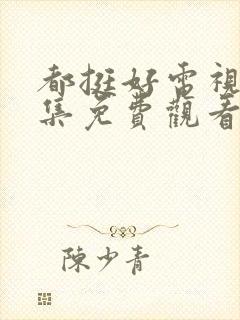 都挺好電視
集免費觀看
陳少青